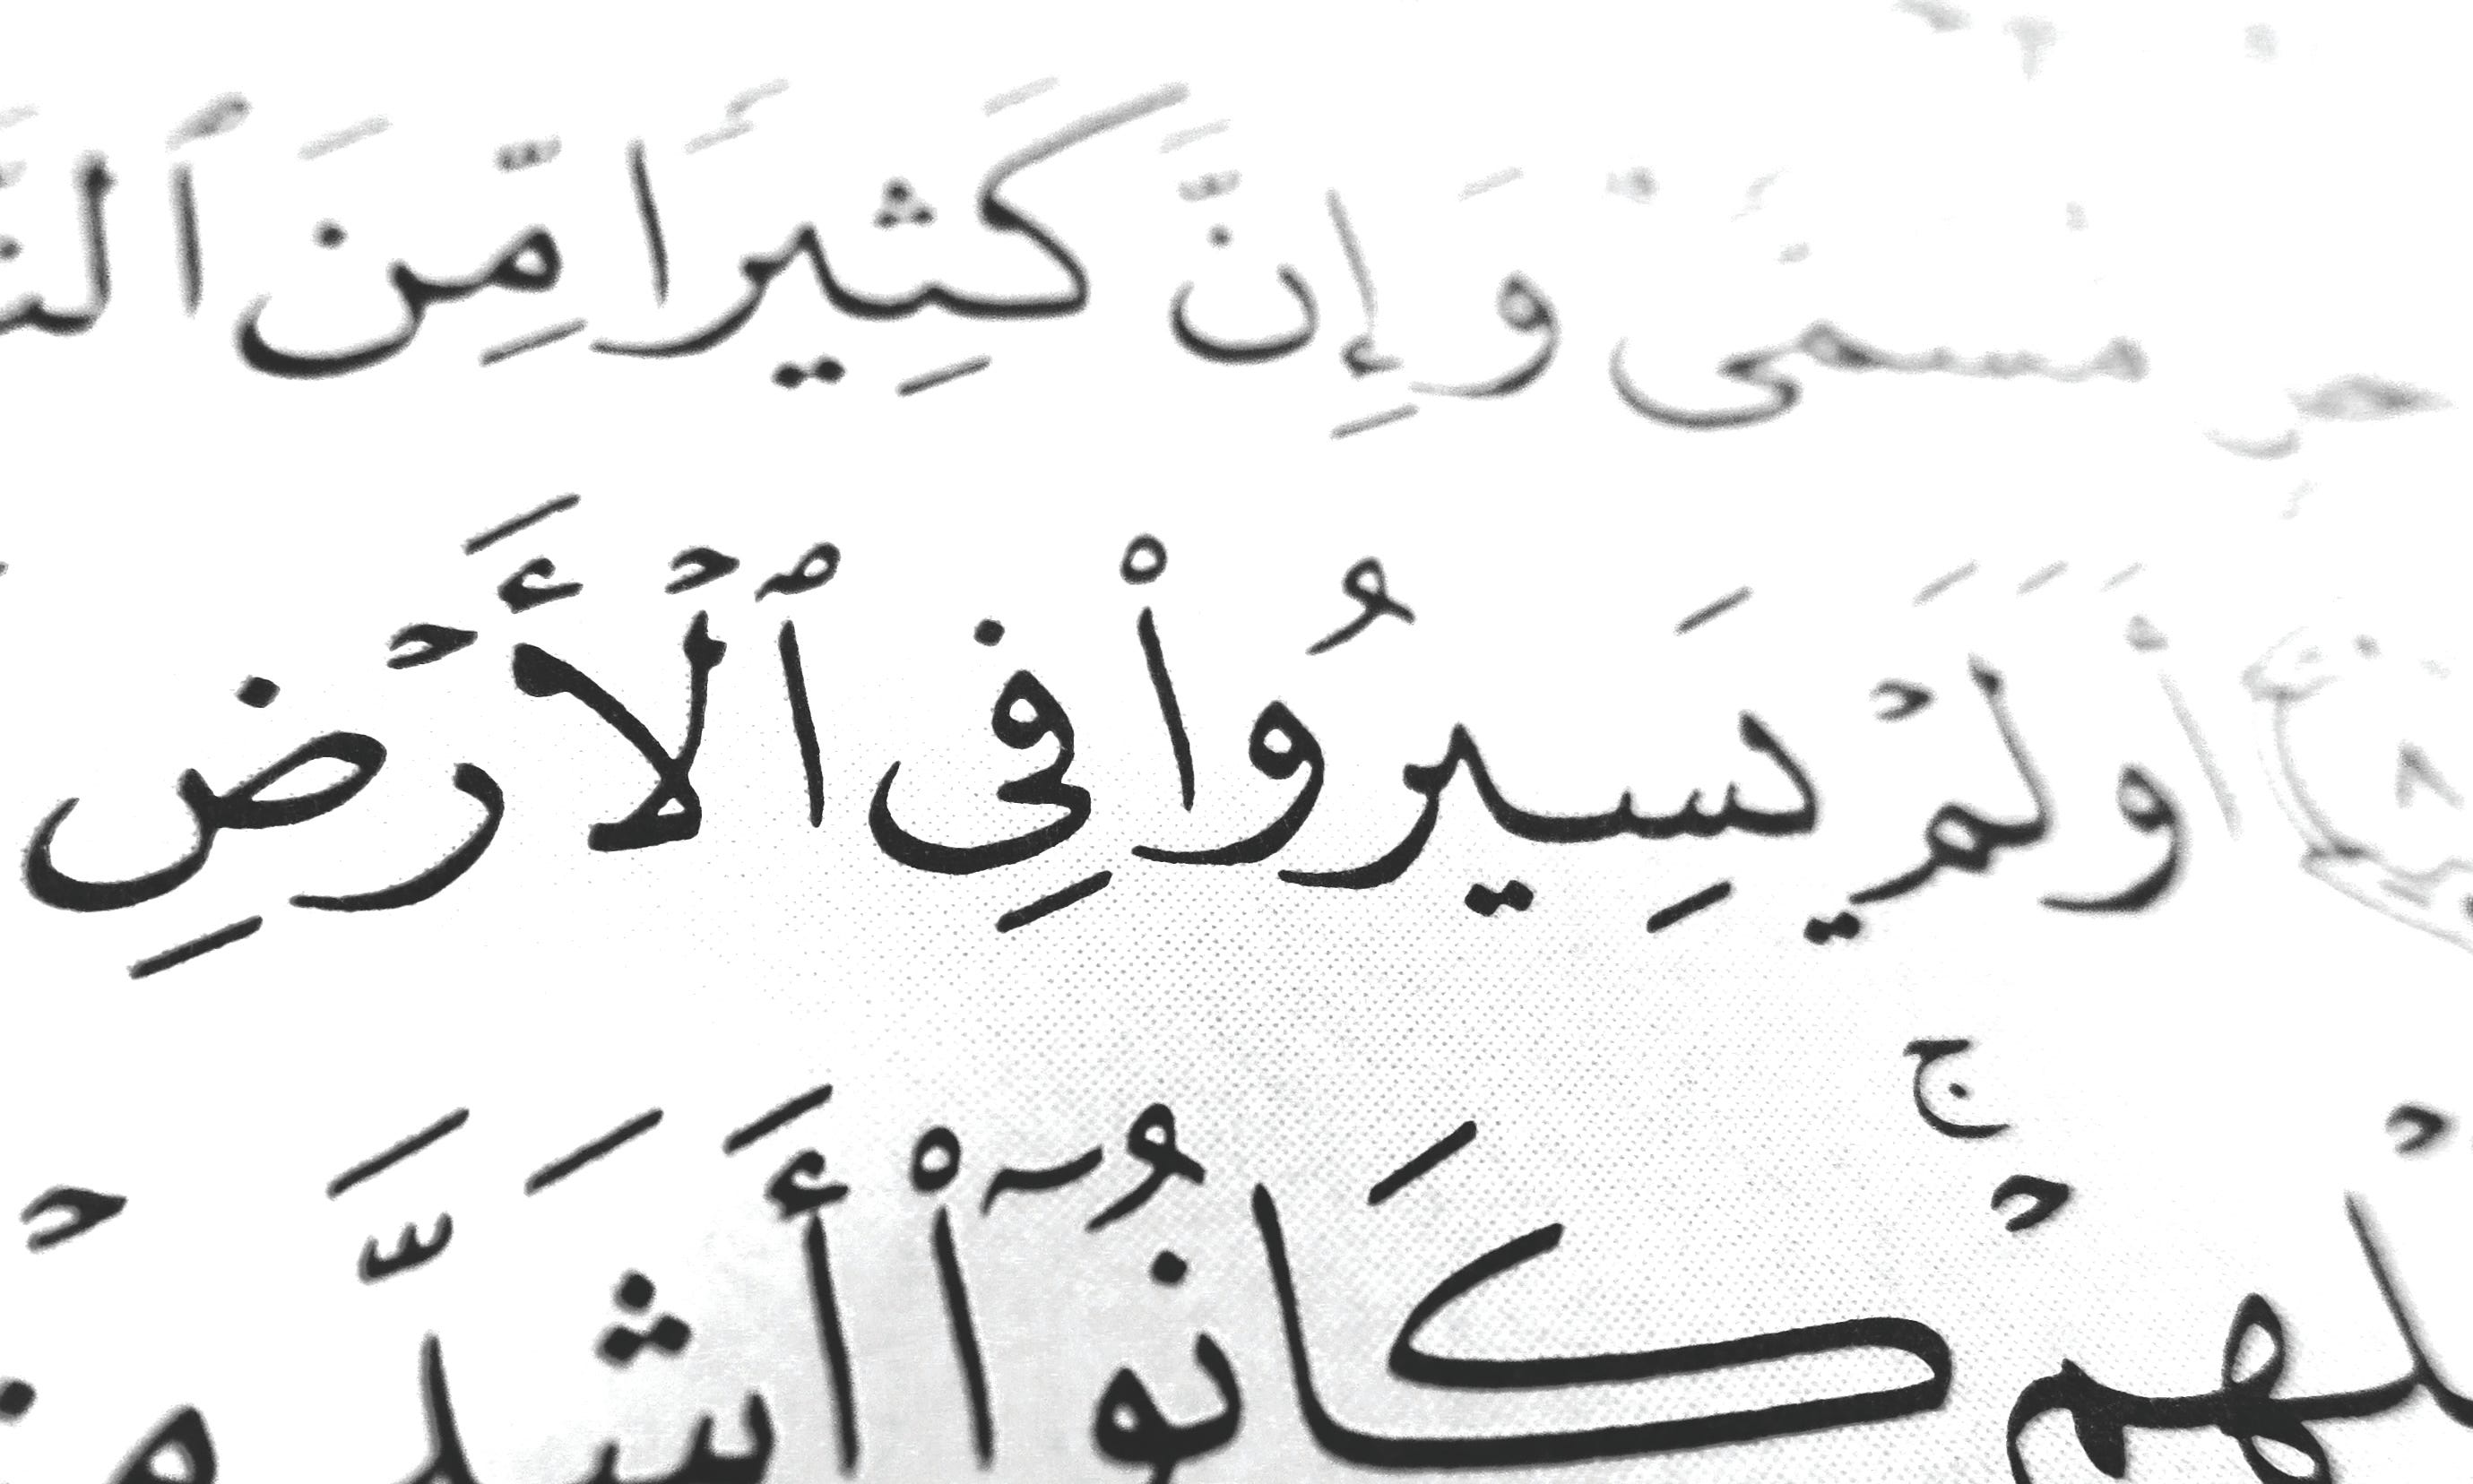 مُّسَمًّى وَإِنَّ كَثِيرًا مِّنَ ٱلنَّ
أَوَلَمْ يَسِيرُوا۟ فِى ٱلْأَرْضِ
لِهِمْ ۚ كَانُوٓا۟ أَشَدَّ مِنْ